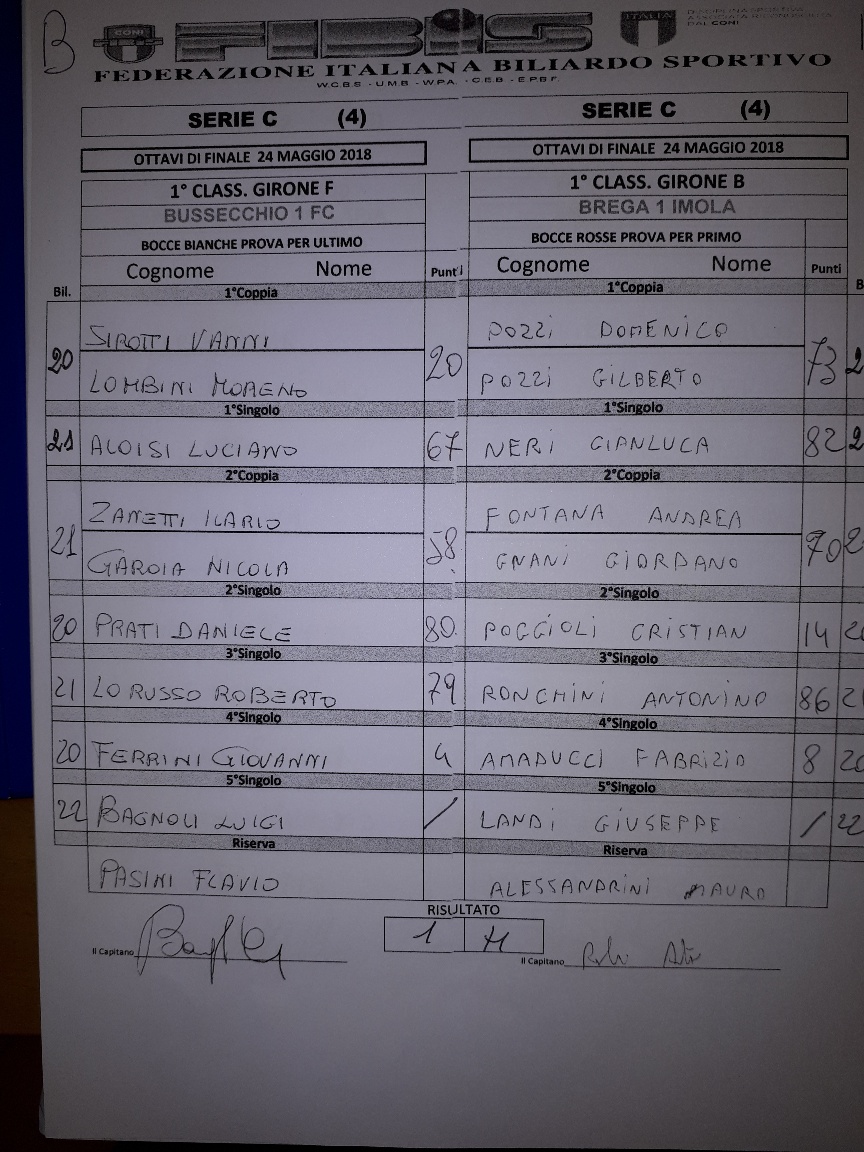 B
CONI FIBIS ITALIA DISCIPLINA SPORTIVA ASSOCIATA RICONOSCIUTA DAL CONI
FEDERAZIONE ITALIANA BILIARDO SPORTIVO
W.C.B.S - U.M.B - W.P.A. - C.E.B - E.P.B.F.
SERIE C (4) SERIE C (4)
OTTAVI DI FINALE 24 MAGGIO 2018 OTTAVI DI FINALE 24 MAGGIO 2018
1° CLASS. GIRONE F 1° CLASS. GIRONE B
BUSSECCHIO 1 FC BREGA 1 IMOLA
BOCCE BIANCHE PROVA PER ULTIMO BOCCE ROSSE PROVA PER PRIMO
Cognome Nome Punti Cognome Nome Punti
Bil. 1°Coppia 1°Coppia B
SIROTTI VANNI POZZI DOMENICO
20 20 73 2
LOMBINI MORENO POZZI GILBERTO
1°Singolo 1°Singolo
21 ALOISI LUCIANO 67 NERI GIANLUCA 82 2
2°Coppia 2°Coppia
ZANETTI ILARIO FONTANA ANDREA
21 58 70 2
GAROIA NICOLA GNANI GIORDANO
2°Singolo 2°Singolo
20 PRATI DANIELE 80 POGGIOLI CRISTIAN 14 20
3°Singolo 3°Singolo
21 LORUSSO ROBERTO 79 RONCHINI ANTONINO 86 21
4°Singolo 4°Singolo
20 FERRINI GIOVANNI 4 AMADUCCI FABRIZIO 8 20
5°Singolo 5°Singolo
22 BAGNOLI LUIGI / LANDI GIUSEPPE / 22
Riserva Riserva
PASINI FLAVIO ALESSANDRINI MAURO
RISULTATO
1 4
Il Capitano Il Capitano